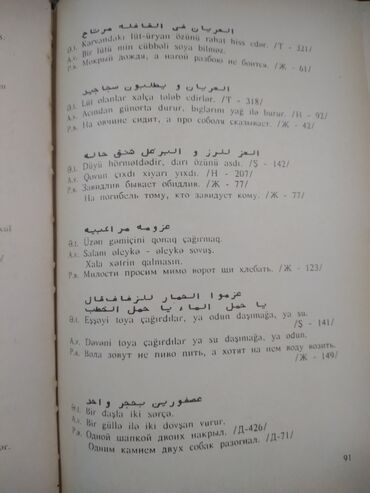 العريان فى القافله مرتاح
Ə.t. Karvandakı lüt-üryan özünü rahat hiss edər. /T - 321/
A.v. Bir lütü min cübbəli soya bilməz.
P.в. Мокрый дождя, а нагой разбою не боится. /Ж - 61/
العريان و يطلبون سجاجيد
Ə.t. Lüt olanlar xalça tələb edirlər. /T - 318/
A.v. Acından günorta durur, bığlarını yağ ilə burur. /H - 92/
P.в. На овчине сидит, а про соболя сказывает. /Ж - 42/
العز للرز و البرغل شنق حاله
Ə.t. Düyü hörmətdədir, darı özünü asdı. /Ş - 142/
A.v. Qovun çıxdı xiyarı yıxdı. /H - 207/
P.в. Завидлив бывает обидлив. /Ж - 77/
На погибель тому, кто завидует кому. /Ж - 77/
عزومه مراكبيه
Ə.t. Üzən gəmiçini qonaq çağırmaq.
A.v. Salam əleykə - əleykə sovuş.
Xala xətrin qalmasın.
P.в. Милости просим мимо ворот щи хлебать. /Ж - 123/
عزموا الحمار للزفاف قال
يا حمل الماء يا حمل الحطب
Ə.t. Eşşəyi toya çağırdılar, ya odun daşımağa, ya su.
/Ş - 141/
A.v. Dəvəni toya çağırdılar ya su daşımağa, ya odun.
P.в. Вола зовут не пиво пить, а хотят на нем воду возить.
/Ж - 149/
عصفورين بحجر واحد
Ə.t. Bir daşla iki sərçə.
A.v. Bir güllə ilə iki dovşan vurur.
P.в. Одной шапкой двоих накрыл. /Д-426/
Одним камнем двух собак разогнал. /Д-71/
91